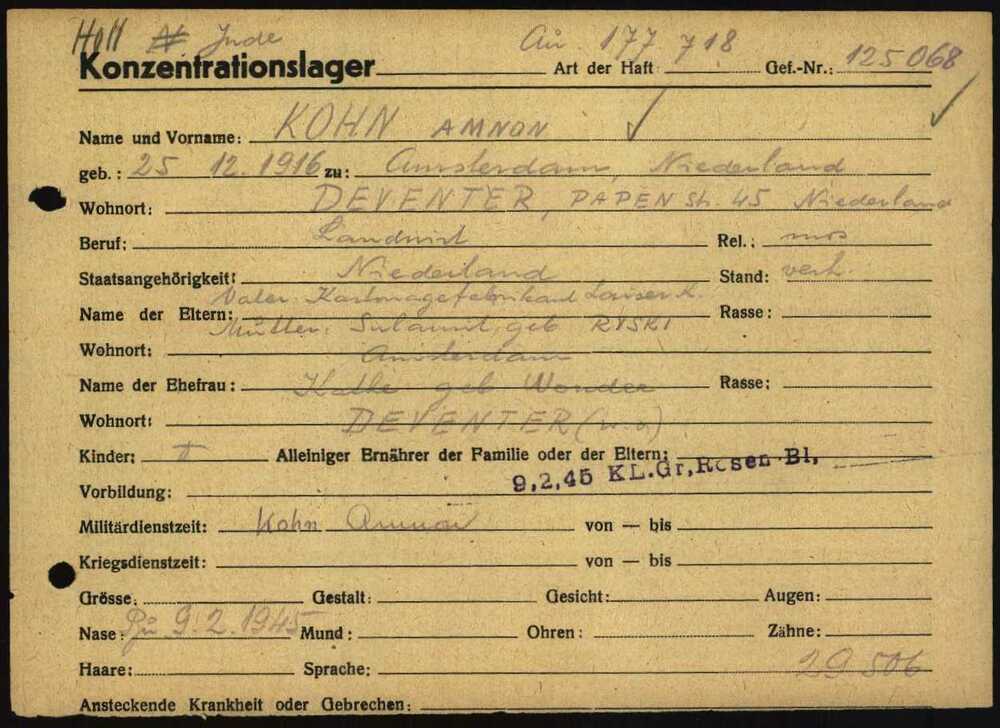 Holl N Jude Au. 177 718
Konzentrationslager Art der Haft Gef.-Nr.: 125068
Name und Vorname: KOHN AMNON
geb.: 25 12. 1916 zu: Amsterdam, Niederland
Wohnort: DEVENTER, PAPEN Str. 45 Niederland
Beruf: Landwirt Rel.: mos
Staatsangehörigkeit: Niederland Stand: verh.
Vater: Kartonagefabrikant Laiser K.
Name der Eltern: Rasse:
Mutter: Sulamit geb RYSKI
Wohnort: Amsterdam
Name der Ehefrau: Käthe geb Wonder Rasse:
Wohnort: DEVENTER (w.o)
Kinder: II Alleiniger Ernährer der Familie oder der Eltern:
9.2.45 KL.Gr.Rosen-Bl.
Vorbildung:
Militärdienstzeit: Kohn Amnon von — bis
Kriegsdienstzeit: von — bis
Grösse: Gestalt: Gesicht: Augen:
Nase: Bu 9.2.1945 Mund: Ohren: Zähne:
Haare: Sprache: 29 506
Ansteckende Krankheit oder Gebrechen: